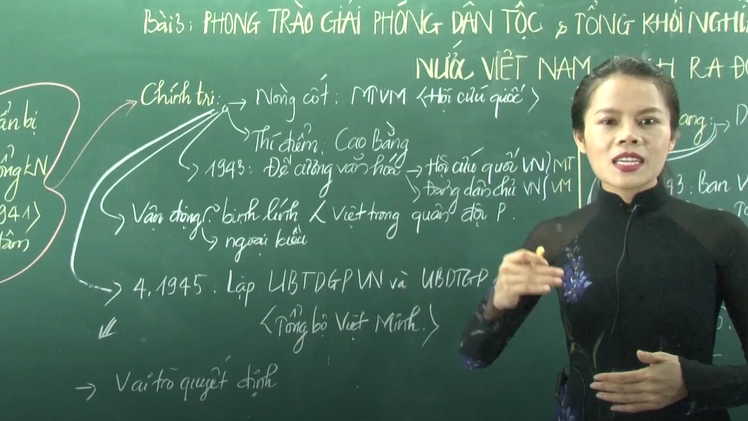 Bài 3: PHONG TRÀO GIẢI PHÓNG DÂN TỘC & TỔNG KHỞI NGHĨ
NƯỚC VIỆT NAM RA Đ
Chính trị: → Nòng cốt: MTVM <Hội cứu quốc>
Thí điểm. Cao Bằng
1943: Đề cương văn hóa → Hội cứu quốc VN MT
Đảng dân chủ VN VM
Vận động: binh lính < Việt trong quân đội P.
ngoại kiều
4.1945. Lập UBTDGPVN và UBDTGP
<Tổng bộ Việt Minh.>
→ Vai trò quyết định
ẩn bị
ổng kN
1941>
tâm
ang: → D
43: Ban V